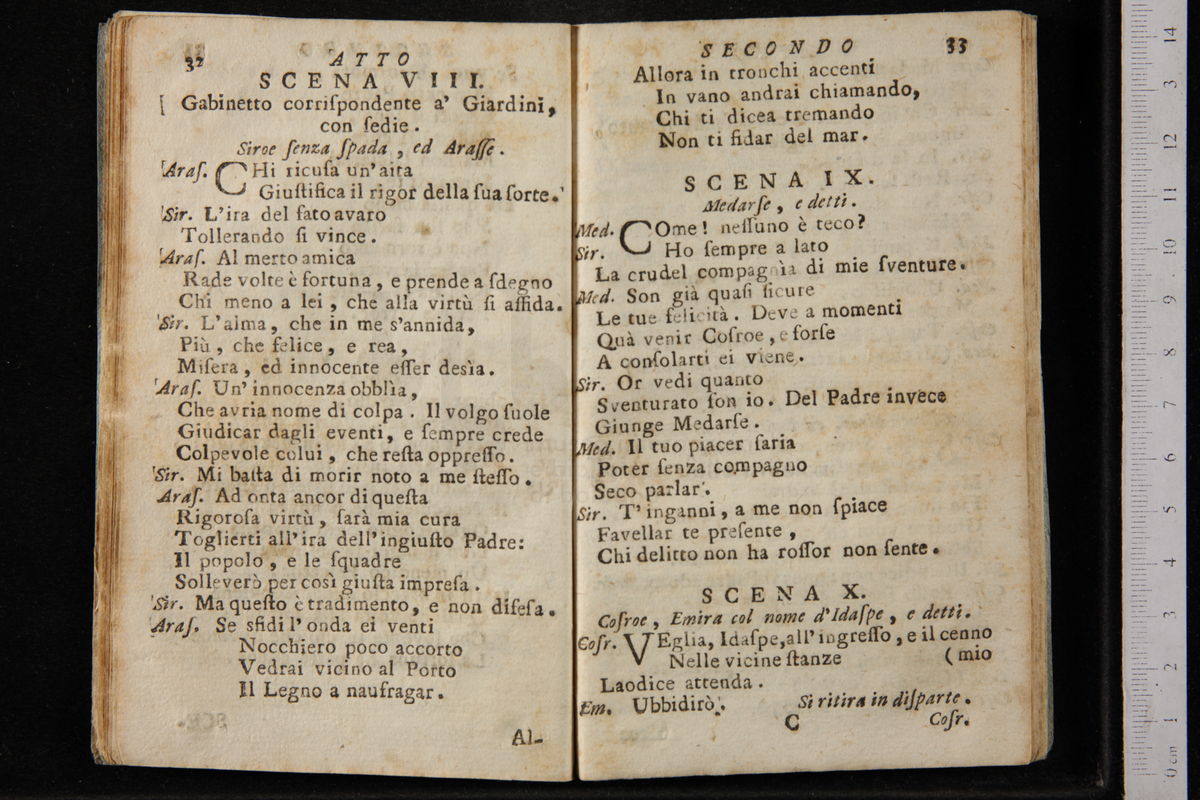 32
ATTO
SCENA VIII.
[ Gabinetto corriſpondente a' Giardini,
con ſedie.
Siroe ſenza ſpada, ed Araſſe.
Araſ. CHi ricuſa un'aita
Giuſtifica il rigor della ſua ſorte.
Sir. L'ira del fato avaro
Tollerando ſi vince.
Araſ. Al merto amica
Rade volte è fortuna, e prende a ſdegno
Chi meno a lei, che alla virtù ſi affida.
Sir. L'alma, che in me s'annida,
Più, che felice, e rea,
Miſera, ed innocente eſſer desìa.
Araſ. Un'innocenza obblìa,
Che avria nome di colpa. Il volgo ſuole
Giudicar dagli eventi, e ſempre crede
Colpevole colui, che reſta oppreſſo.
Sir. Mi baſta di morir noto a me ſteſſo.
Araſ. Ad onta ancor di queſta
Rigoroſa virtù, ſarà mia cura
Toglierti all'ira dell'ingiuſto Padre:
Il popolo, e le ſquadre
Solleverò per così giuſta impreſa.
Sir. Ma queſto è tradimento, e non difeſa.
Araſ. Se sfidi l'onda ei venti
Nocchiero poco accorto
Vedrai vicino al Porto
Il Legno a naufragar.
Al-
SECONDO
33
Allora in tronchi accenti
In vano andrai chiamando,
Chi ti dicea tremando
Non ti fidar del mar.
SCENA IX.
Medarſe, e detti.
Med. COme! neſſuno è teco?
Sir. Ho ſempre a lato
La crudel compagnìa di mie ſventure.
Med. Son già quaſi ſicure
Le tue felicità. Deve a momenti
Quà venir Coſroe, e forſe
A conſolarti ei viene.
Sir. Or vedi quanto
Sventurato ſon io. Del Padre invece
Giunge Medarſe.
Med. Il tuo piacer ſaria
Poter ſenza compagno
Seco parlar.
Sir. T'inganni, a me non ſpiace
Favellar te preſente,
Chi delitto non ha roſſor non ſente.
SCENA X.
Coſroe, Emira col nome d'Idaſpe, e detti.
Coſr. VEglia, Idaſpe, all'ingreſſo, e il cenno
Nelle vicine ſtanze (mio
Laodice attenda.
Em. Ubbidirò. Si ritira in diſparte.
C Coſr.
0 cm 1 2 3 4 5 6 7 8 9 10 11 12 13 14